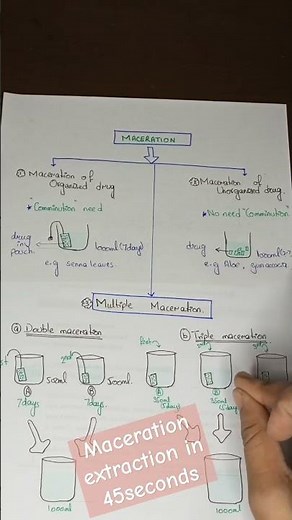 MACERATION
① Maceration of
Organized drug
"Comminution" need
drug
in
pouch
1000ml (7days)
e.g senna leaves.
② Maceration of
Unorganized drug.
* No need "Comminution"
drug
e.g Aloe,
③ Multiple Maceration.
ⓐ Double maceration
500ml
7days
500ml.
7days.
1000ml
ⓑ Triple maceration
1000ml
Maceration
extraction in
45seconds